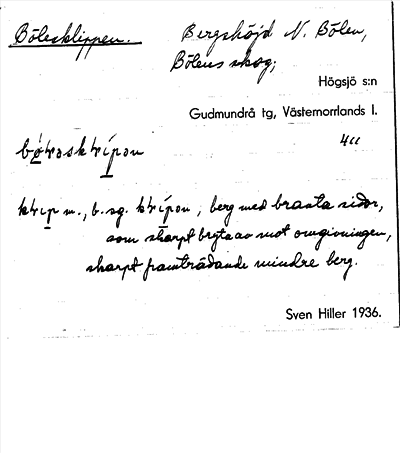 Bölesklippen.
Bergshöjd N. Bölen,
Bölens skog;
Högsjö s:n
Gudmundrå tg, Västernorrlands l.
klip m., b. sg. , berg med branta sidor,
som skarpt bryta av mot omgivningen,
skarpt framträdande mindre berg.
Sven Hiller 1936.